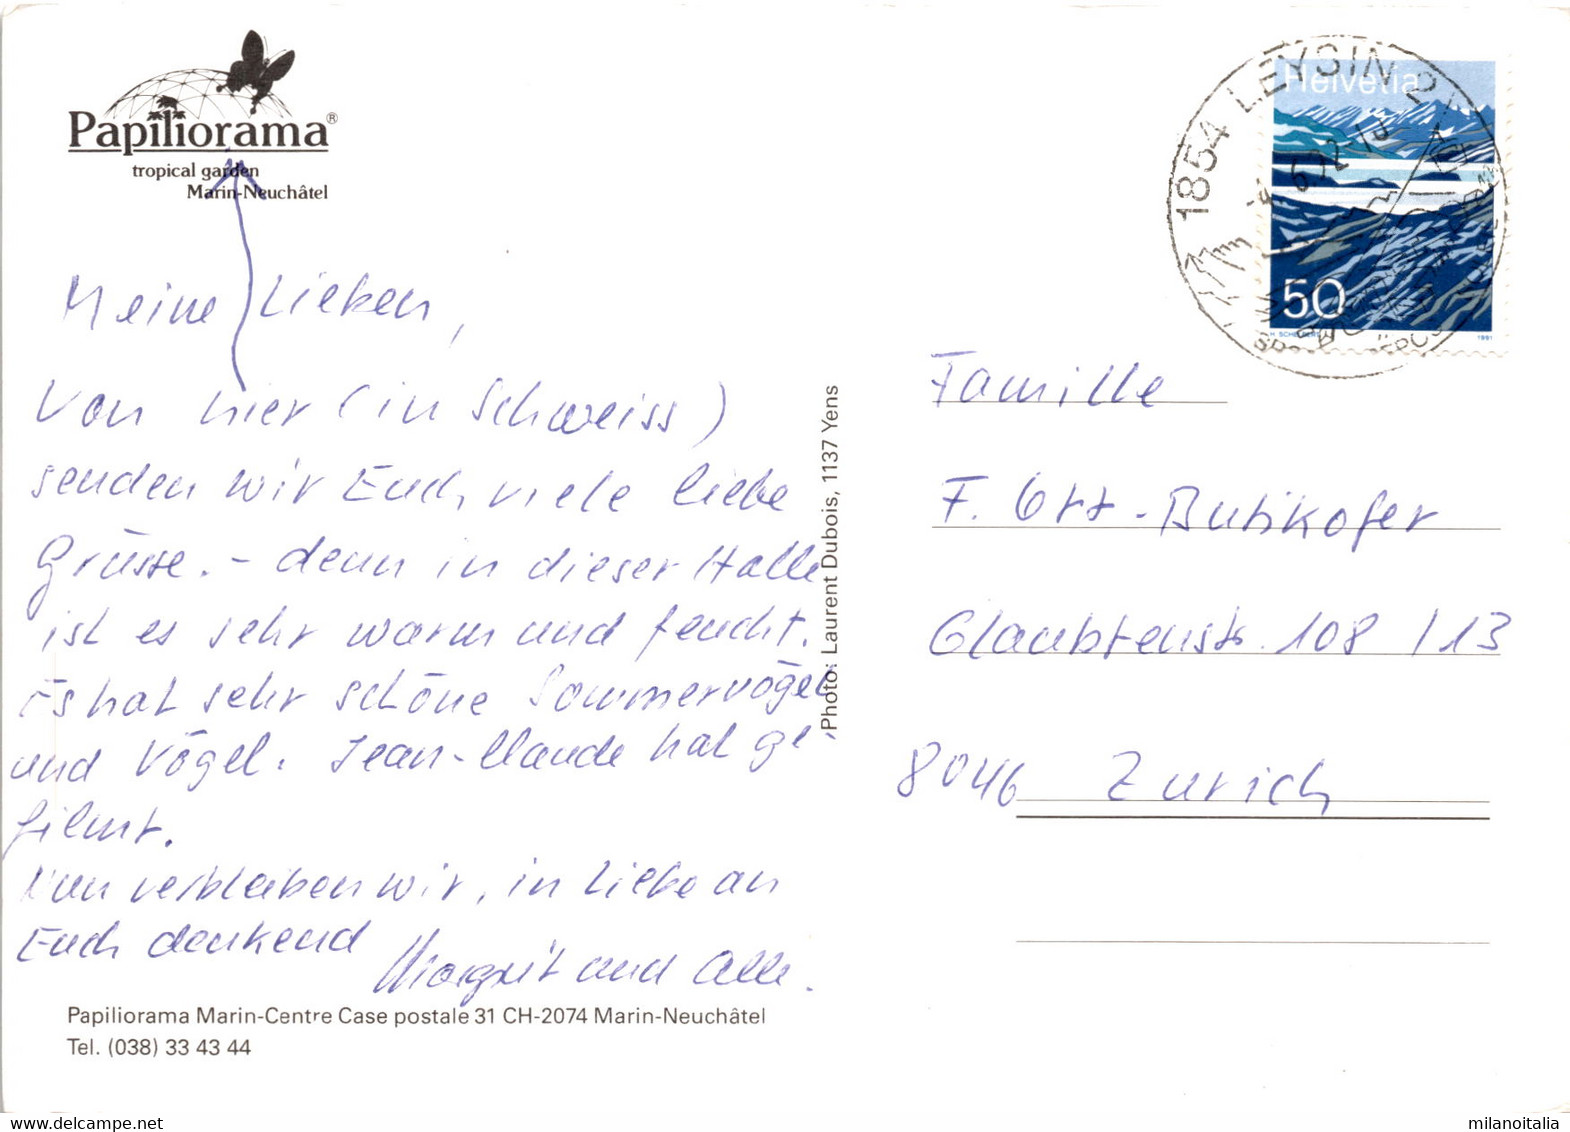 Papiliorama®
tropical garden
Marin-Neuchâtel
Meine Lieben,
Von hier (in Schweiss)
senden wir Euch viele liebe
Grüsse. - denn in dieser Halle
ist es sehr warm und feucht.
Es hat sehr schöne Sommervögel
und Vögel. Jean-Claude hat ge-
filmt.
Nun verbleiben wir, in Liebe an
Euch denkend
Margrit und Alle.
Papiliorama Marin-Centre Case postale 31 CH-2074 Marin-Neuchâtel
Tel. (038) 33 43 44
Photo: Laurent Dubois, 1137 Yens
1854 LEYSIN 2
Helvetia
50
1991
Familie
F. Ott-Butikofer
Glaubtenstr. 108 / 13
8046 Zürich
milanoitalia